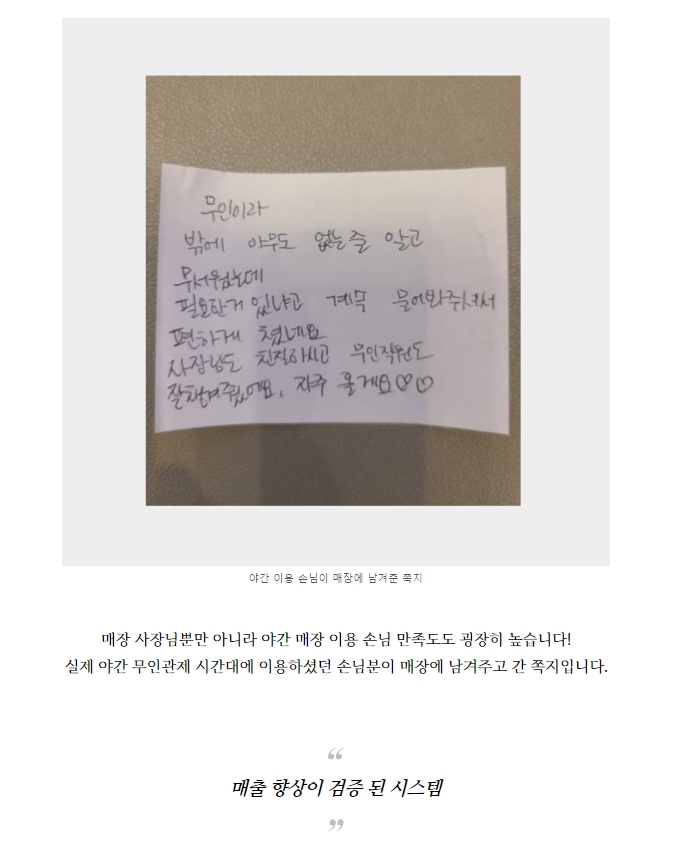 무인이라
밖에 아무도 없는줄 알고
무서웠는데
필요한거 있냐고 계속 물어봐주셔서
편하게 쳤네요
사장님도 친절하시고 무인직원도
잘챙겨주셨어요. 자주 올게요♡♡
야간 이용 손님이 매장에 남겨준 쪽지
매장 사장님뿐만 아니라 야간 매장 이용 손님 만족도도 굉장히 높습니다!
실제 야간 무인관제 시간대에 이용하셨던 손님분이 매장에 남겨주고 간 쪽지입니다.
“
매출 향상이 검증 된 시스템
”